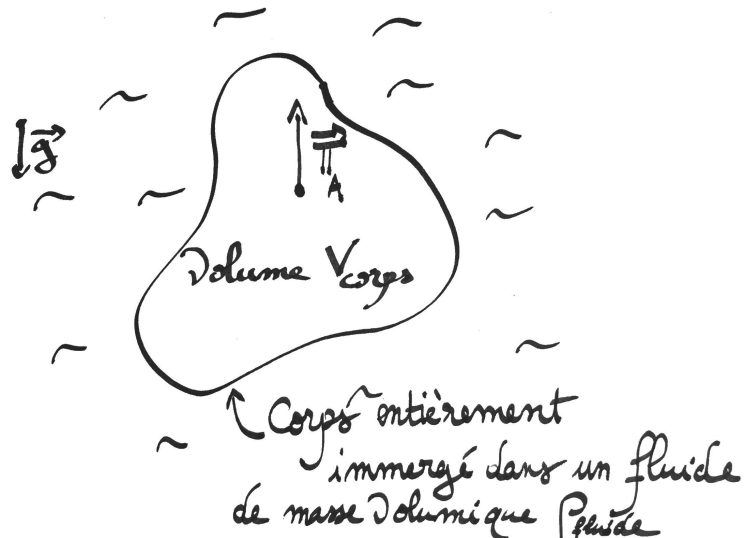 g
Π
A
Volume V corps
Corps entièrement
immergé dans un fluide
de masse volumique ρ fluide